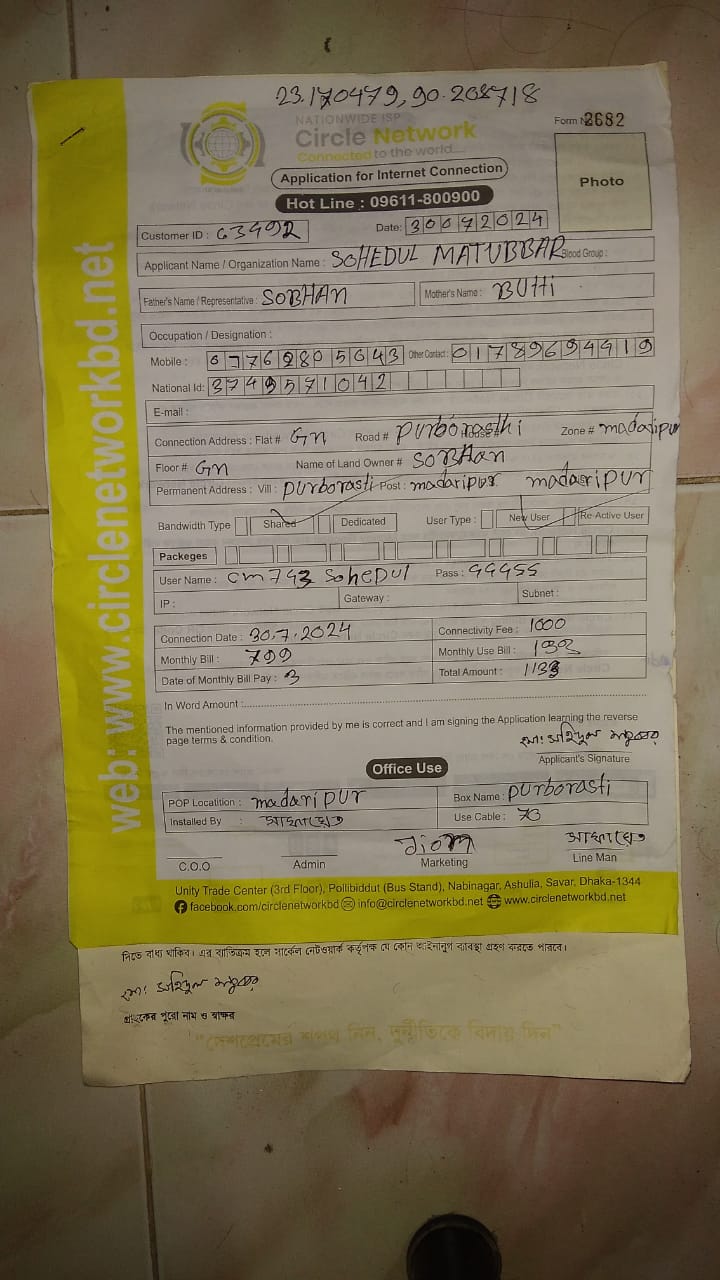 23.170479, 90.208718
NATIONWIDE ISP
Circle Network
Connected to the world....
Form No 2682
Application for Internet Connection
Photo
Hot Line : 09611-800900
Customer ID : C3492 Date: 30072024
Applicant Name / Organization Name : SOHEDUL MATUBBAR Blood Group :
Father's Name / Representative : SOBHAN Mother's Name : BUTTi
Occupation / Designation :
Mobile : Other Contact : 01789694919
National Id: 3749571042
E-mail :
Connection Address : Flat # Gn Road # purborasthi House # Zone # madaripur
Floor # Gn Name of Land Owner # SOBHAN
Permanent Address : Vill : purborasti Post : madaripur madaripur
Bandwidth Type Shared Dedicated User Type : New User Re-Active User
Packeges
User Name : cm743 SoheDul Pass : 99455
IP : Gateway : Subnet :
Connection Date : 30.7.2024 Connectivity Fee : 1000
Monthly Bill : 799 Monthly Use Bill : 133
Date of Monthly Bill Pay : 3 Total Amount : 1133
In Word Amount :
The mentioned information provided by me is correct and I am signing the Application learning the reverse
page terms & condition.
মোঃ সহিদুল মাতুব্বর
Applicant's Signature
Office Use
POP Localtition : madaripur Box Name : purborasti
Installed By : Use Cable : 70
C.O.O Admin Marketing Line Man
Unity Trade Center (3rd Floor), Pollibiddut (Bus Stand), Nabinagar, Ashulia, Savar, Dhaka-1344
facebook.com/circlenetworkbd info@circlenetworkbd.net www.circlenetworkbd.net
web: www.circlenetworkbd.net
দিতে বাধ্য থাকিব। এর ব্যতিক্রম হলে সার্কেল নেটওয়ার্ক কর্তৃপক্ষ যে কোন আইনানুগ ব্যবস্থা গ্রহণ করতে পারবে।
মোঃ সহিদুল মাতুব্বর
গ্রাহকের পুরো নাম ও স্বাক্ষর
"দেশপ্রেমের শপথ নিন, দুর্নীতিকে বিদায় দিন"